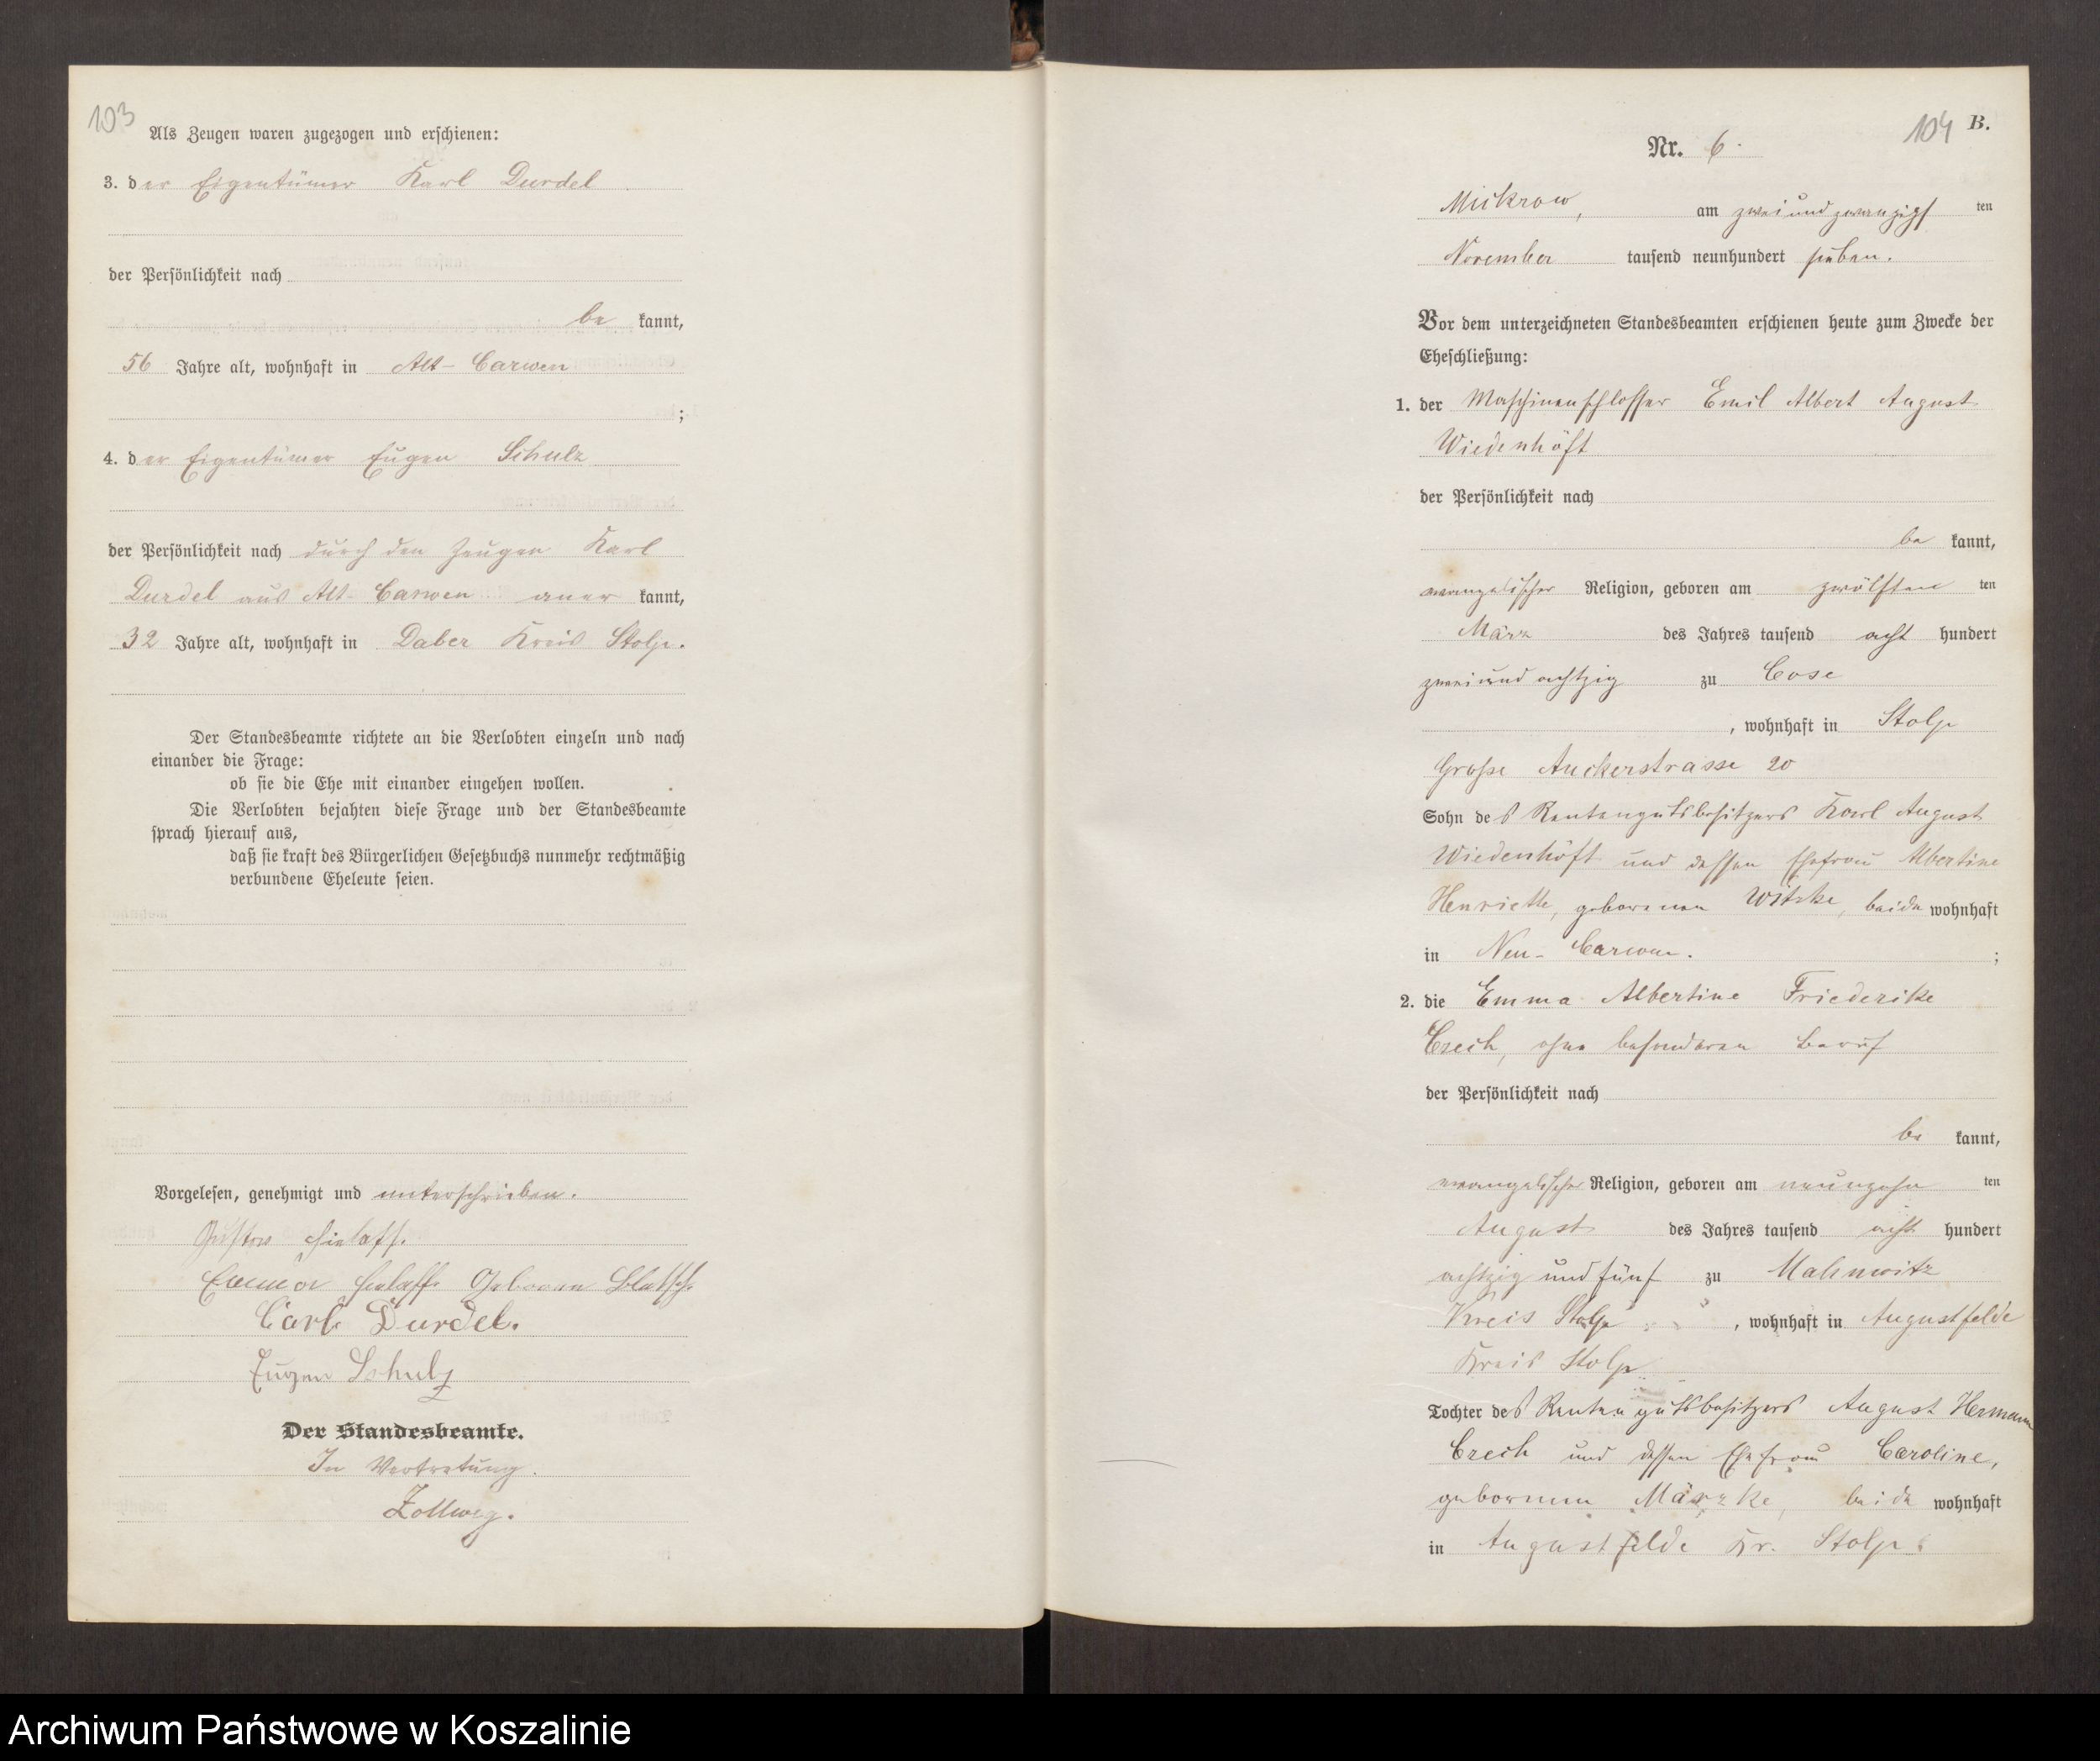 103
Als Zeugen waren zugezogen und erschienen:
3. der Eigentümer Karl Durdel
der Persönlichkeit nach
be kannt,
56 Jahre alt, wohnhaft in Alt-Carwen
;
4. der Eigentümer Eugen Schulz
der Persönlichkeit nach durch den Zeugen Karl
Durdel aus Alt-Carwen aner kannt,
32 Jahre alt, wohnhaft in Daber Kreis Stolp.
Der Standesbeamte richtete an die Verlobten einzeln und nach
einander die Frage:
ob sie die Ehe mit einander eingehen wollen.
Die Verlobten bejahten diese Frage und der Standesbeamte
sprach hierauf aus,
daß sie kraft des Bürgerlichen Gesetzbuchs nunmehr rechtmäßig
verbundene Eheleute seien.
Vorgelesen, genehmigt und unterschrieben.
Gustav
Geboren
Carl Durdel.
Eugen Schulz
Der Standesbeamte.
In Vertretung.
Zollweg.
104 B.
Nr. 6.
Mickrow, am zweiundzwanzigs ten
November tausend neunhundert sieben.
Vor dem unterzeichneten Standesbeamten erschienen heute zum Zwecke der
Eheschließung:
1. der Maschinenschlosser Emil Albert August
Wiedenhöft
der Persönlichkeit nach
be kannt,
evangelischer Religion, geboren am zwölften ten
März des Jahres tausend acht hundert
zweiundachtzig zu Cose
, wohnhaft in Stolp
Große Auckerstrasse 20
Sohn des Rentengutsbesitzers Karl August
Wiedenhöft und dessen Ehefrau Albertine
Henriette, geborenen Witzke, beide wohnhaft
in Neu-Carwen. ;
2. die Emma Albertine Friederike
Czech, ohne besonderen Beruf
der Persönlichkeit nach
be kannt,
evangelischer Religion, geboren am neunzehn ten
August des Jahres tausend acht hundert
achtzig und fünf zu Mahnwitz
Kreis Stolp , wohnhaft in Augustfelde
Kreis Stolp
Tochter des Rentengutsbesitzers August Hermann
Czech und dessen Ehefrau Caroline,
geborenen Märzke, beide wohnhaft
in Augustfelde Kr. Stolp
Archiwum Państwowe w Koszalinie